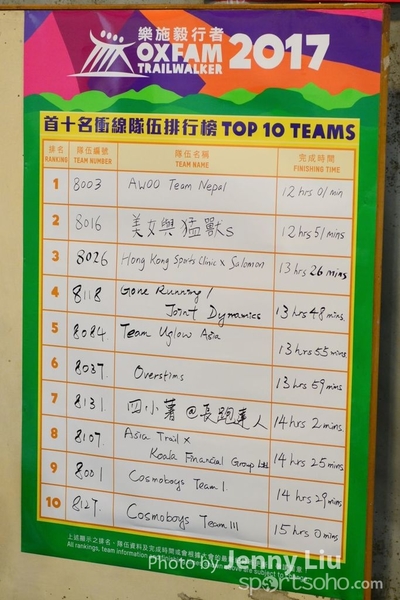 樂施毅行者
OXFAM
TRAILWALKER
2017
首十名衝線隊伍排行榜 TOP 10 TEAMS
排名 隊伍編號 隊伍名稱 完成時間
RANKING TEAM NUMBER TEAM NAME FINISHING TIME
1 8003 AWOO Team Nepal 12 hrs 01 min
2 8016 美女與猛獸s 12 hrs 51 mins
3 8026 Hong Kong Sports Clinic x Salomon 13 hrs 26 mins
4 8118 Gone Running / 13 hrs 48 mins.
Joint Dynamics
5 8084. Team Uglow Asia 13 hrs 55 mins.
6 8037. Overstims 13 hrs 59 mins
7 8131. 四小薯@長跑達人 14 hrs 2 mins.
8 8107. Asia Trail x 14 hrs 25 mins.
Koala Financial Group Ltd
9 8001 Cosmoboys Team I. 14 hrs 29 mins.
10 8127. Cosmoboys Team III 15 hrs 0 mins.
上述顯示之排名、隊伍資料及完成時間或會根據大會
All rankings, team information
are subject to
Photo by Jenny Liu
sportsoho.com